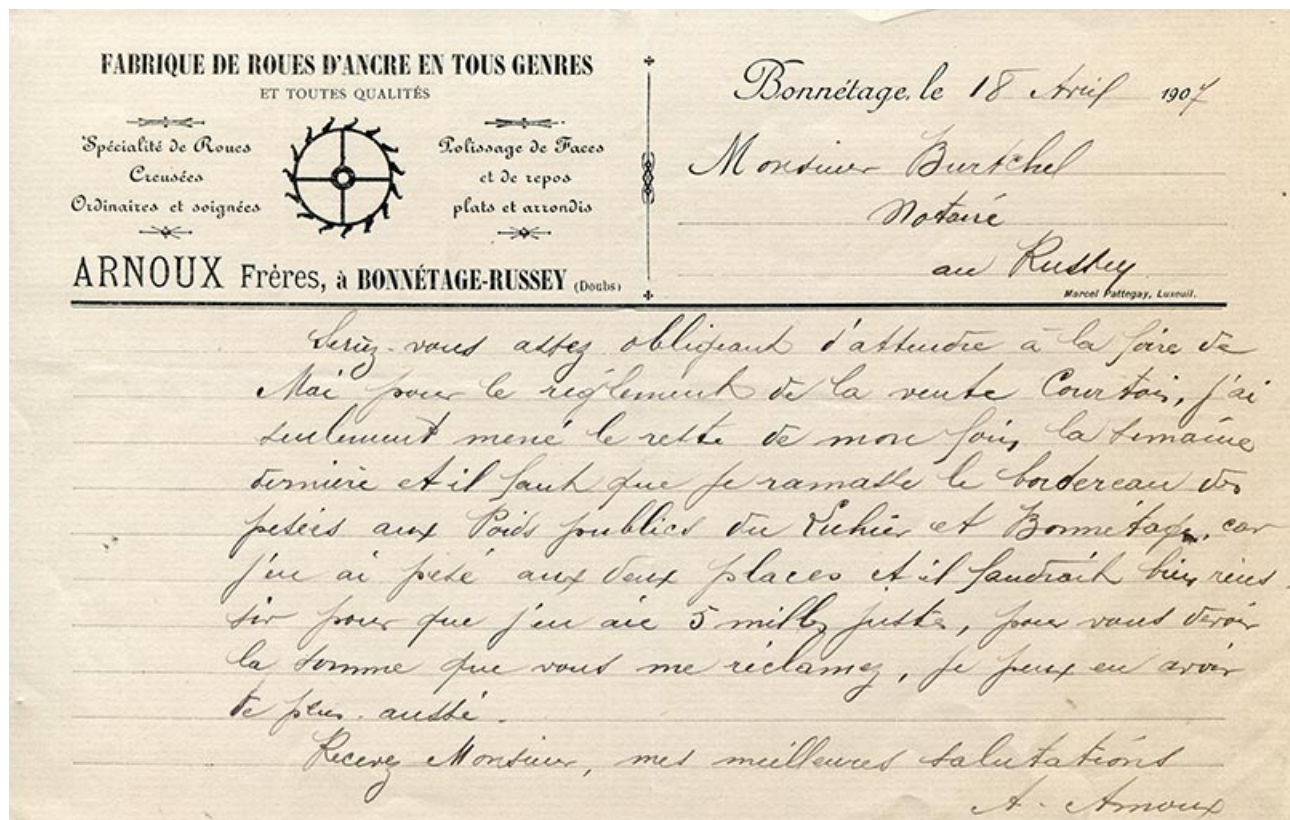 FABRIQUE DE ROUES D'ANCRE EN TOUS GENRES
ET TOUTES QUALITÉS
Spécialité de Roues
Creusées
Ordinaires et soignées
Polissage de Faces
et de repos
plats et arrondis
ARNOUX Frères, à BONNÉTAGE-RUSSEY (Doubs)
Bonnétage, le 18 Avril 1907
Monsieur Burtchel
Notaire
au Russey
Marcel Pattegay, Luxeuil.
Seriez-vous assez obligeant d'attendre à la foire de
Mai pour le règlement de la vente Courtois, j'ai
seulement mené le reste de mon foin la semaine
dernière et il faut que je ramasse le bordereau des
pesées aux Poids publics du Luhier et Bonnétage, car
j'en ai pesé aux deux places et il faudrait bien réus-
sir pour que j'en aie 5 milles juste, pour vous devoir
la somme que vous me réclamez, je peux en avoir
de plus aussi.
Recevez Monsieur, mes meilleures salutations
A. Arnoux